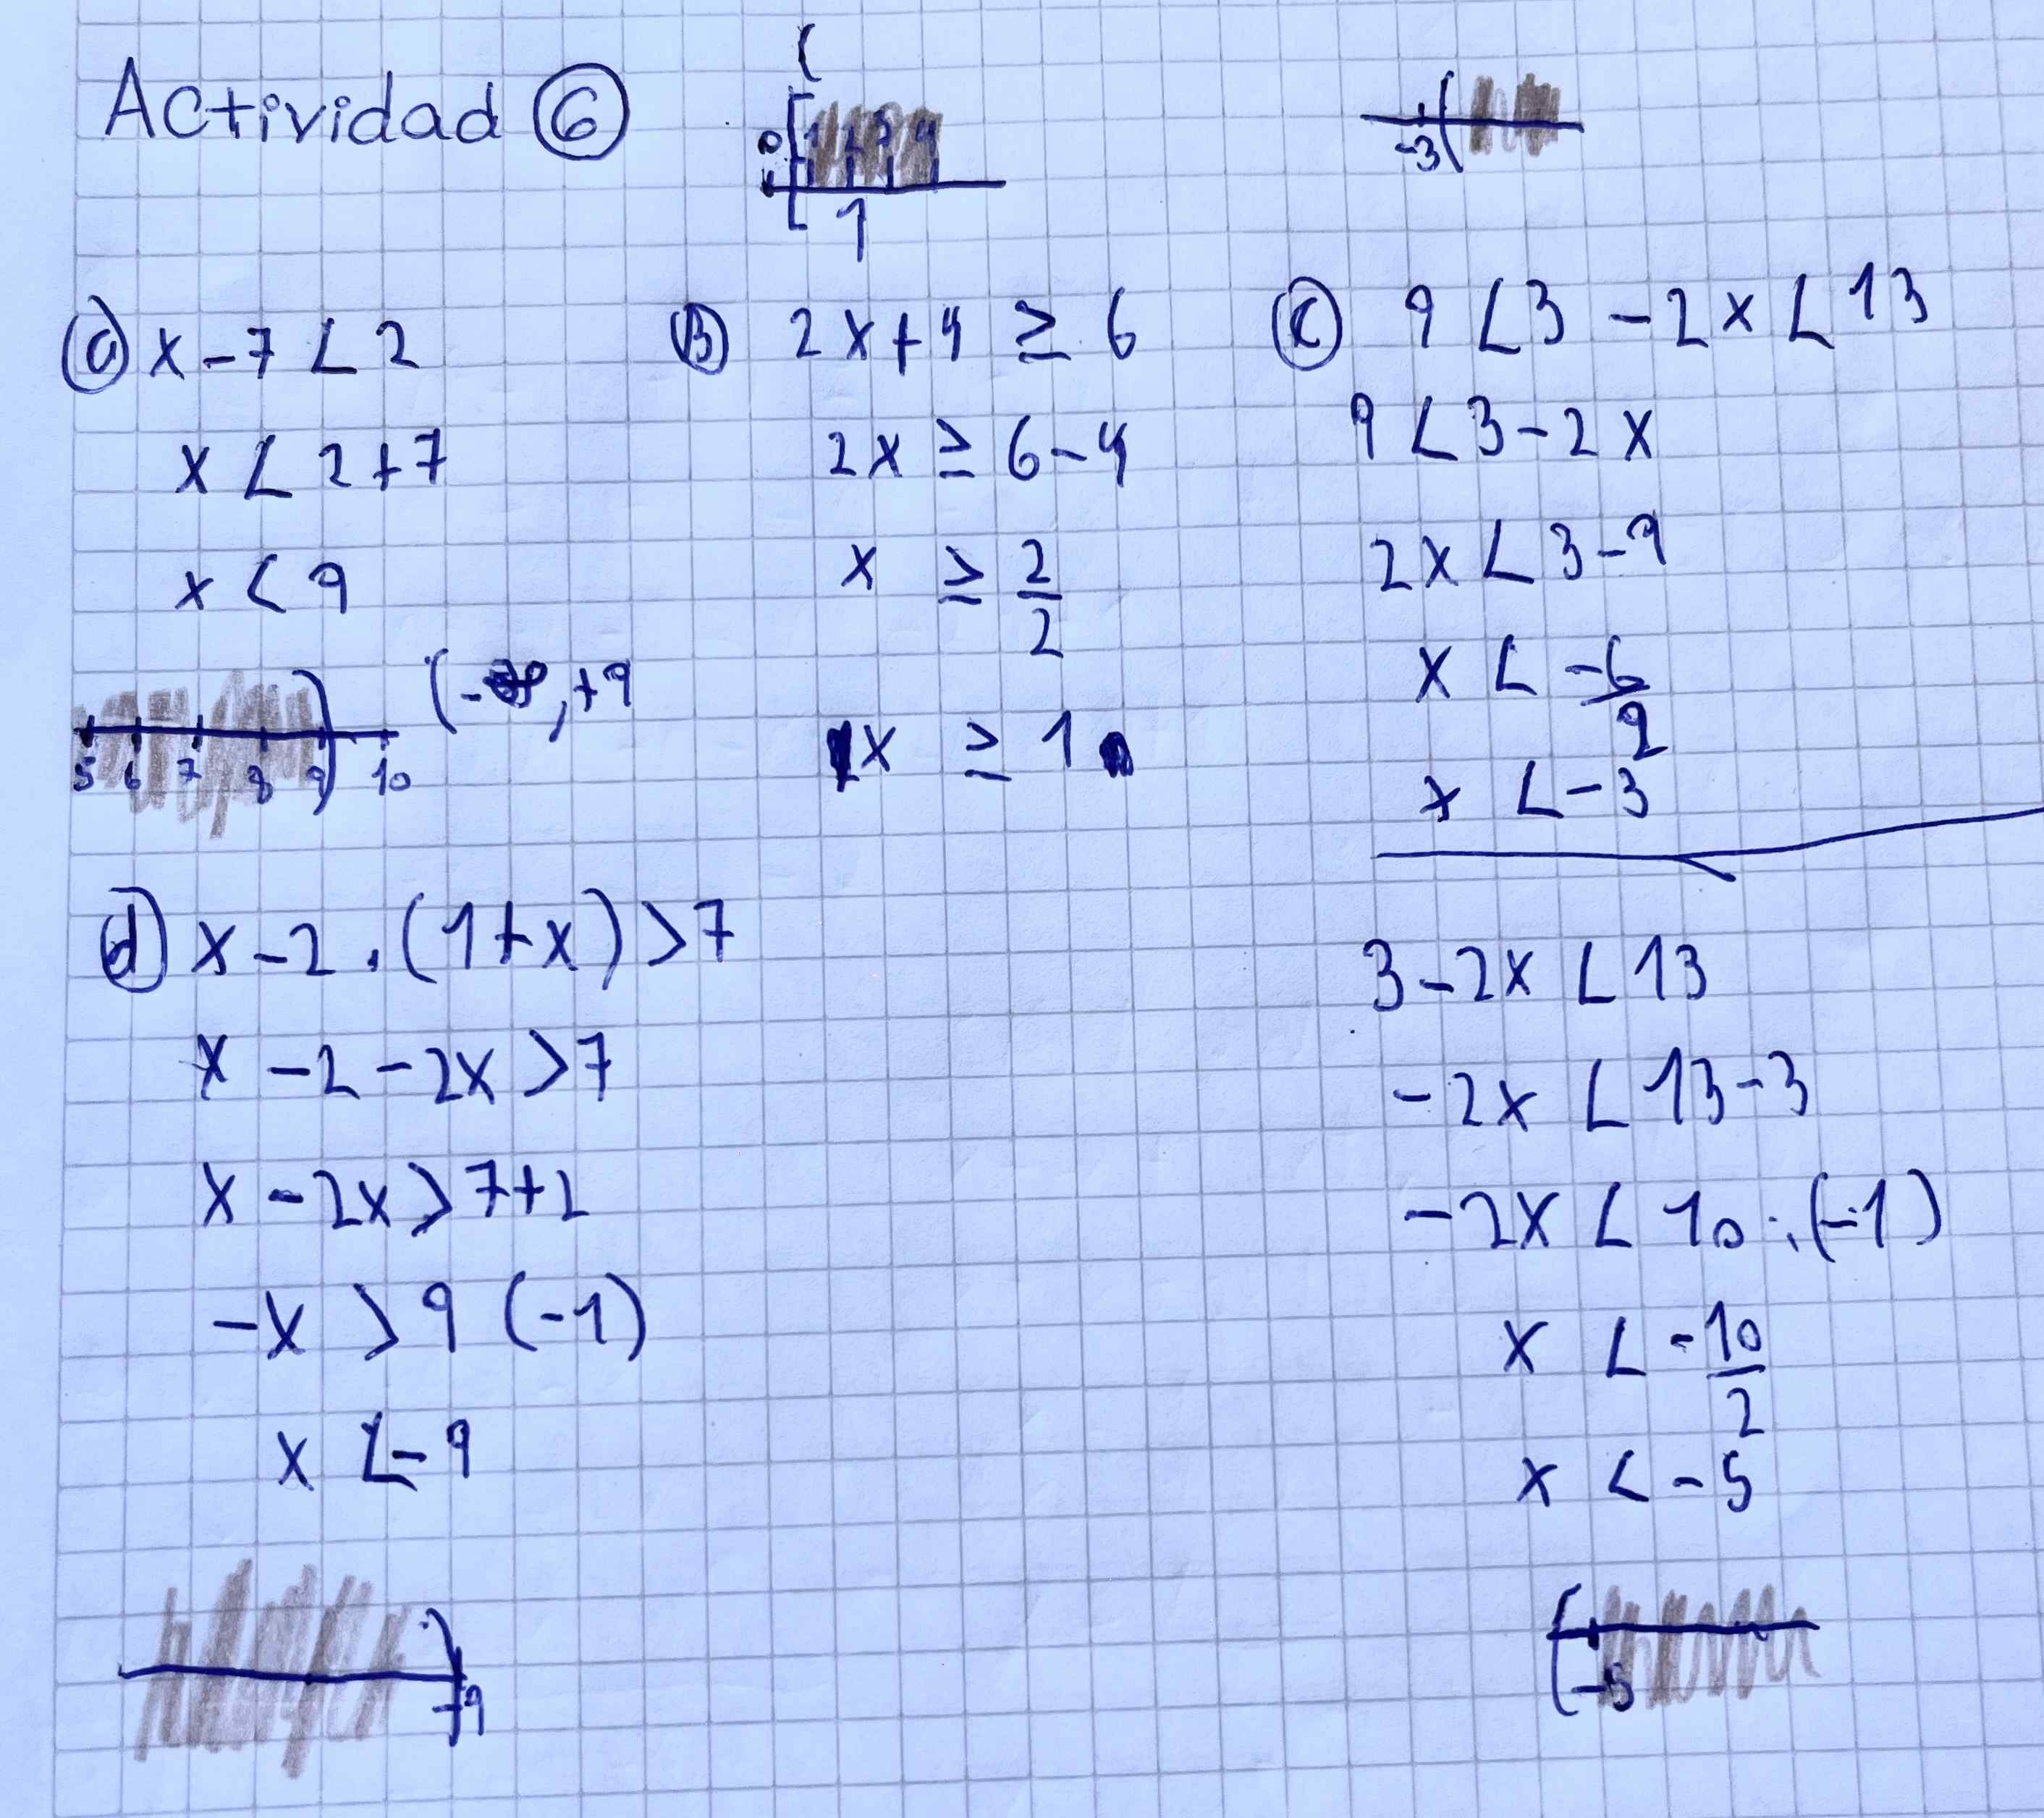 Actividad ⑥
(
0 [ 1 2 3 4
1
-3 (
ⓐ x - 7 < 2
x < 2 + 7
x < 9
5 6 7 8 9 ) 10
, +9
Ⓑ 2x + 4 ≥ 6
2x ≥ 6 - 4
x ≥ 2/2
x ≥ 1
Ⓒ 9 < 3 - 2x < 13
9 < 3 - 2x
2x < 3 - 9
x < -6/2
x < -3
3 - 2x < 13
-2x < 13 - 3
-2x < 10 . (-1)
x < -10/2
x < -5
[ -5
ⓓ x - 2 . (1 + x) > 7
x - 2 - 2x > 7
x - 2x > 7 + 2
-x > 9 (-1)
x < -9
) -9